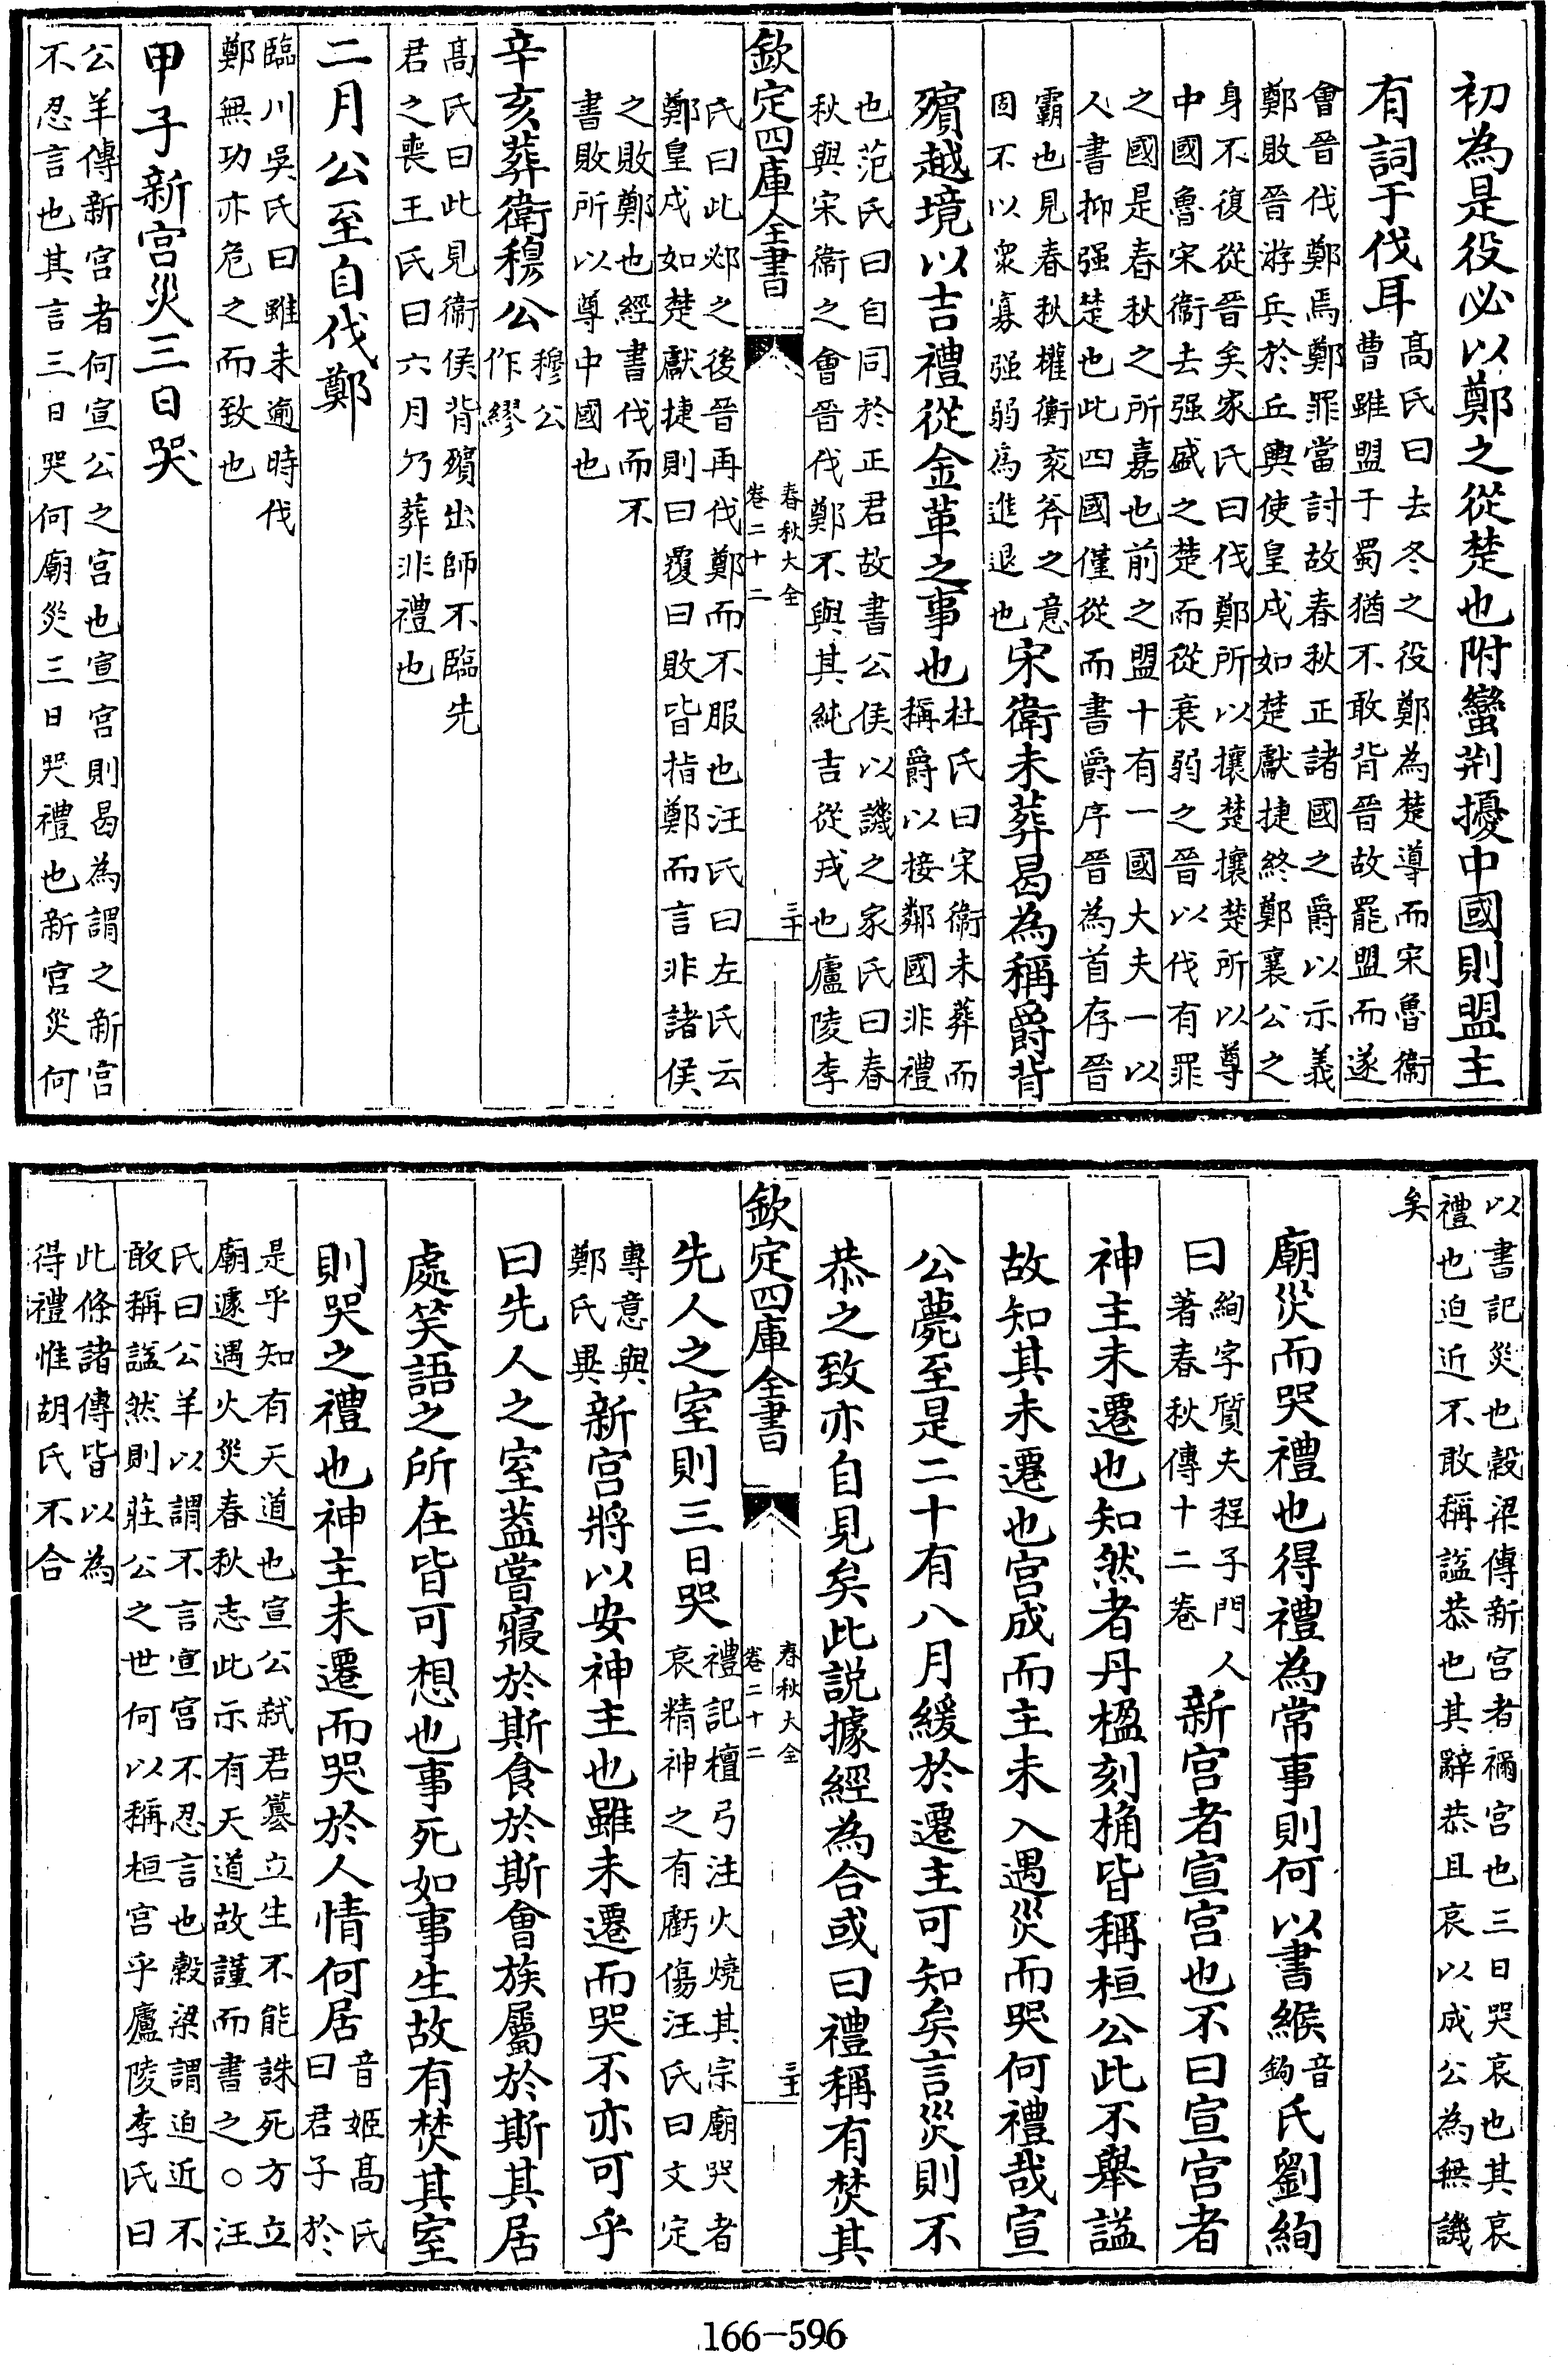 初為是役必以鄭之從楚也附蠻荆擾中國則盟主
有詞于伐耳高氏曰去冬之役鄭為楚導而宋魯衞
曹雖盟于蜀猶不敢背晉故罷盟而遂
會晉伐鄭焉鄭罪當討故春秋正諸國之爵以示義
鄭敗晉游兵於丘輿使皇戌如楚獻捷終鄭襄公之
身不復從晉矣家氏曰伐鄭所以攘楚攘楚所以尊
中國魯宋衞去强盛之楚而從衰弱之晉以伐有罪
之國是春秋之所嘉也前之盟十有一國大夫一以
人書抑强楚也此四國僅從而書爵序晉為首存晉
霸也見春秋權衡衮斧之意
固不以衆寡强弱為進退也宋衛未葬曷為稱爵背
殯越境以吉禮從金革之事也杜氏曰宋衞未葬而
稱爵以接鄰國非禮
也范氏曰自同於正君故書公侯以譏之家氏曰春
秋與宋衞之會晉伐鄭不與其純吉從戎也廬陵李
欽定四庫全書
春秋大全
卷二十二
三十
氏曰此邲之後晉再伐鄭而不服也汪氏曰左氏云
鄭皇戌如楚獻捷則曰覆曰敗皆指鄭而言非諸侯
之敗鄭也經書伐而不
書敗所以尊中國也
辛亥葬衛穆公穆公
作繆
髙氏曰此見衞侯背殯出師不臨先
君之喪王氏曰六月乃葬非禮也
二月公至自伐鄭
臨川吳氏曰雖未逾時伐
鄭無功亦危之而致也
甲子新宫災三日哭
公羊傳新宫者何宣公之宫也宣宫則曷為謂之新宫
不忍言也其言三日哭何廟災三日哭禮也新宫災何
以書記災也穀梁傳新宫者禰宫也三日哭哀也其哀
禮也迫近不敢稱諡恭也其辭恭且哀以成公為無譏
矣
廟災而哭禮也得禮為常事則何以書緱音
鉤氏劉絢
曰絢字質夫程子門人
著春秋傳十二卷新宫者宣宫也不曰宣宫者
神主未遷也知然者丹楹刻桷皆稱桓公此不舉諡
故知其未遷也宫成而主未入遇災而哭何禮哉宣
公薨至是二十有八月緩於遷主可知矣言災則不
恭之致亦自見矣此説據經為合或曰禮稱有焚其
欽定四庫全書
春秋大全
卷二十二
三十一
先人之室則三日哭禮記檀弓注火燒其宗廟哭者
哀精神之有虧傷汪氏曰文定
專意與
鄭氏異新宫將以安神主也雖未遷而哭不亦可乎
曰先人之室蓋嘗寢於斯食於斯會族屬於斯其居
處笑語之所在皆可想也事死如事生故有焚其室
則哭之禮也神主未遷而哭於人情何居音姬髙氏
曰君子於
是乎知有天道也宣公弑君簒立生不能誅死方立
廟遽遇火災春秋志此示有天道故謹而書之○汪
氏曰公羊以謂不言宣宫不忍言也穀梁謂迫近不
敢稱諡然則莊公之世何以稱桓宫乎廬陵李氏曰
此條諸傳皆以為
得禮惟胡氏不合
166-596